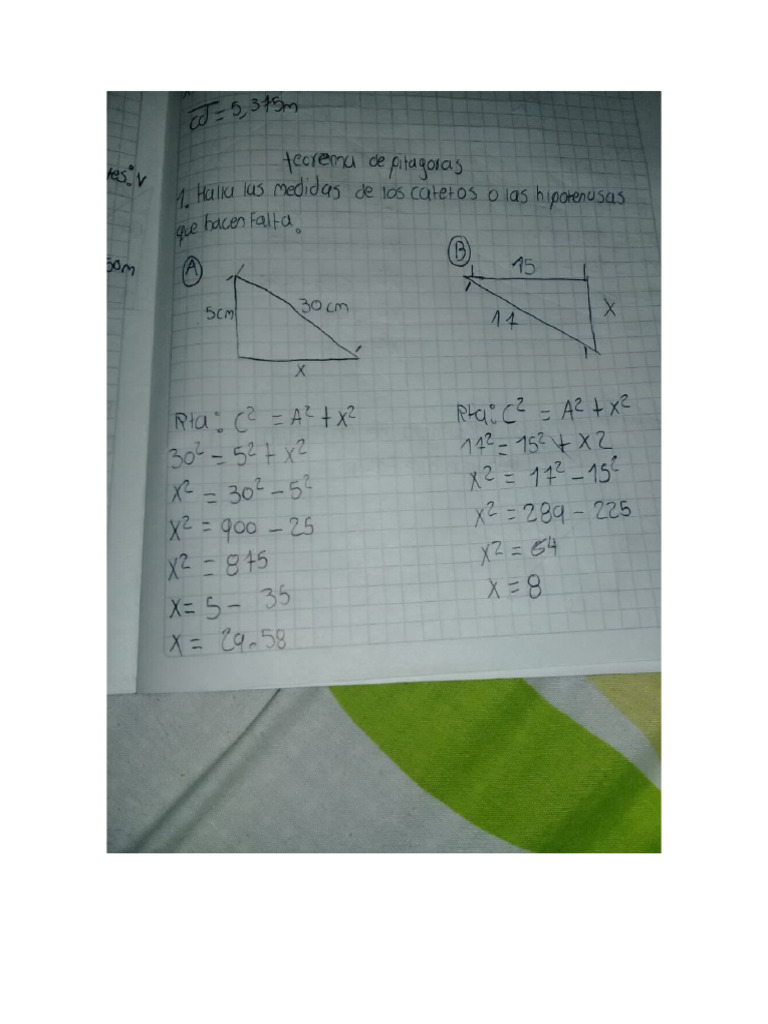 cd = 5,375m
tes: v
30m
teorema de pitagoras
1. Halla las medidas de los catetos o las hipotenusas
que hacen falta.
A
5cm
30cm
x
Rta: C² = A² + x²
30² = 5² + x²
x² = 30² - 5²
x² = 900 - 25
x² = 875
x = 5 - 35
x = 29.58
B
15
17
x
Rta: C² = A² + x²
17² = 15² + x2
x² = 17² - 15²
x² = 289 - 225
x² = 64
x = 8